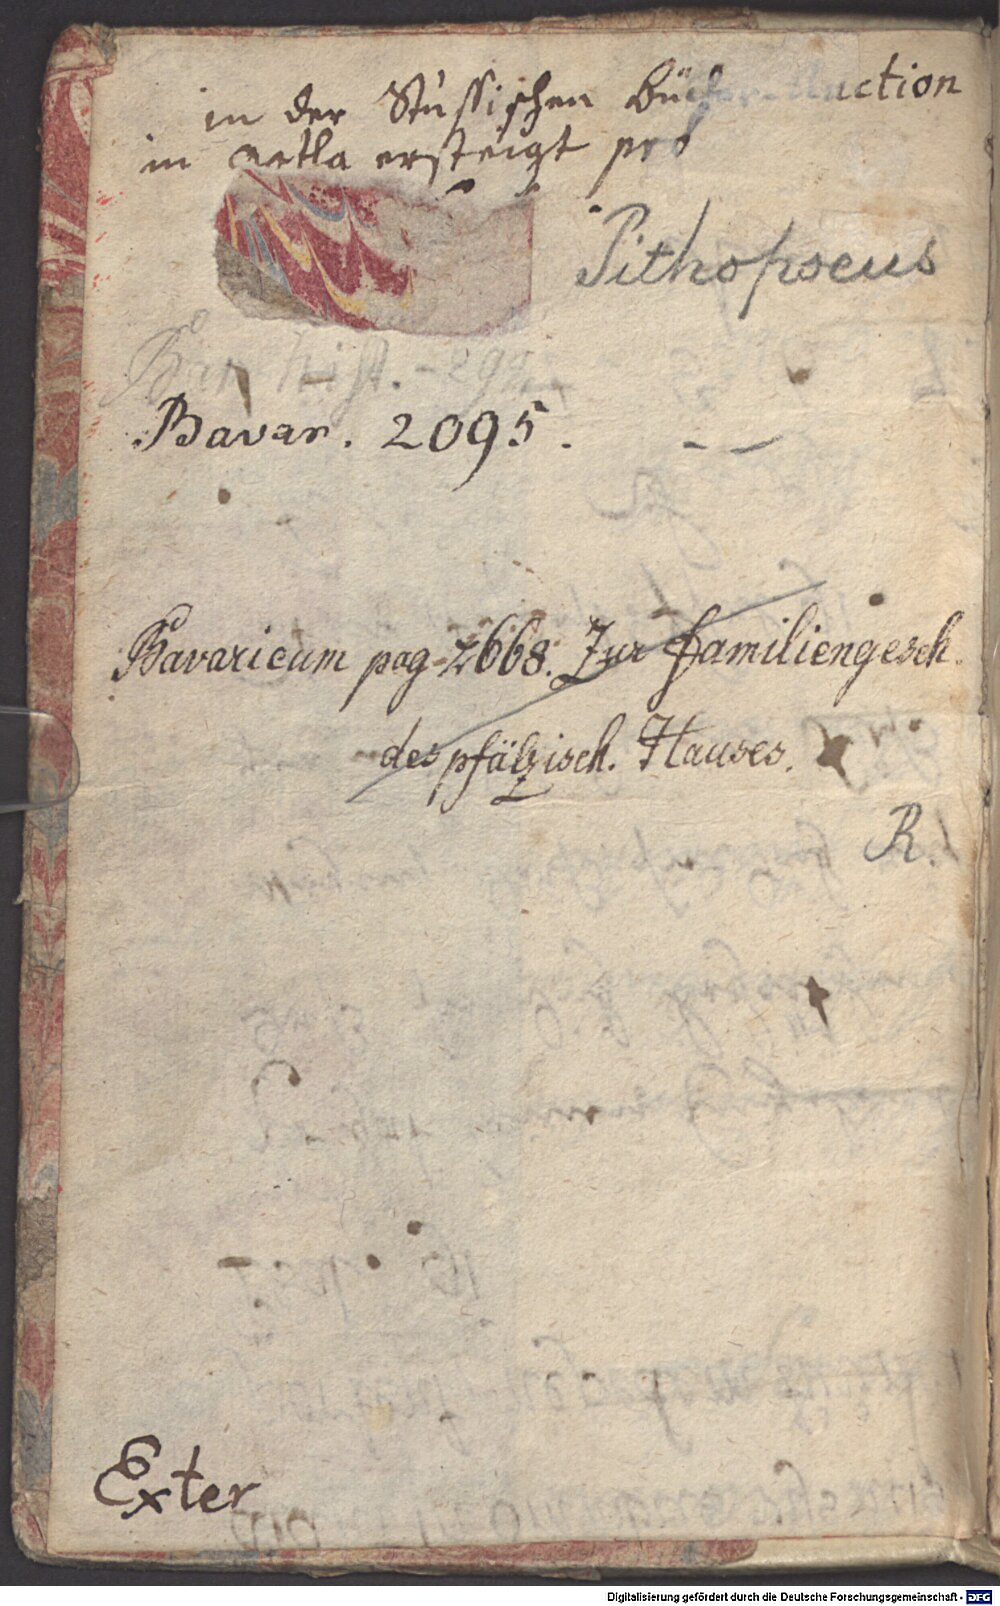 in der Stussischen Bücher-Auction
in ersteigt pro
Pithopoeus
Bavar. 2095.
Bavaricum pag 2668. Zur Familiengesch.
des pfälzisch. Hauses.
R.
Exter
Digitalisierung gefördert durch die Deutsche Forschungsgemeinschaft - DFG